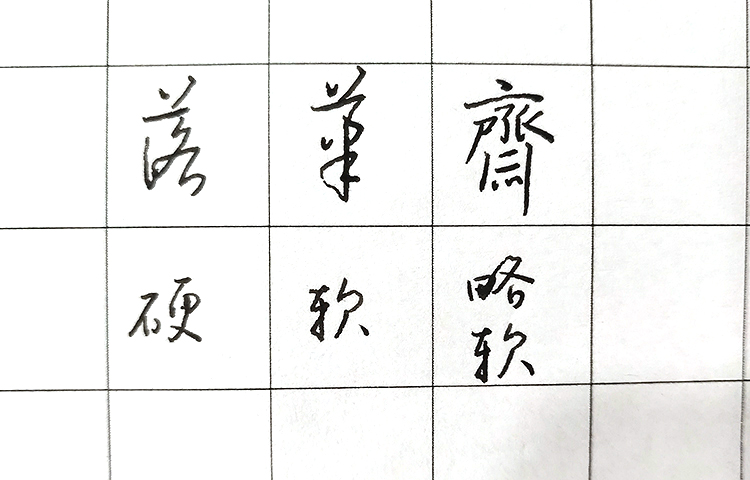 落華齋
硬 软 略软